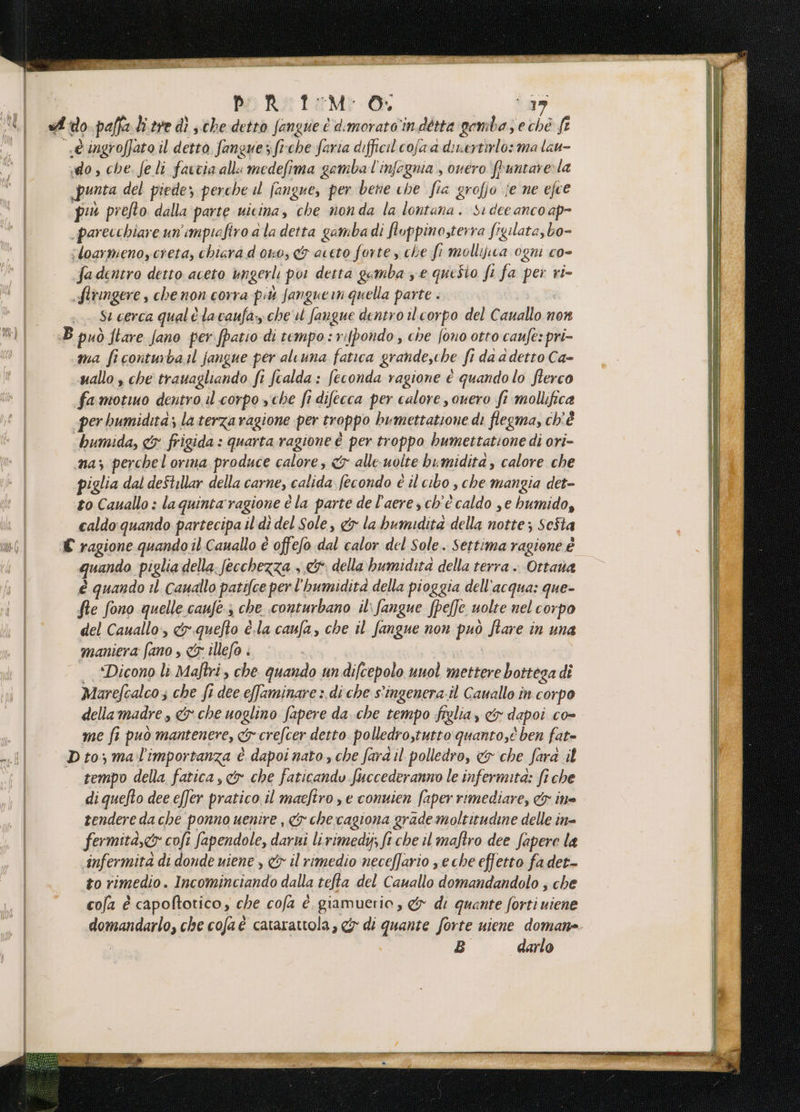 P R I M O. 17
A do passa li tre dì, che detto sangue è dimorato in detta gamba, e chè si
è ingrossato il detto sangue; si che saria difficil cosa a divertirlo: ma lau-
do, che se li faccia alla medesima gamba l'insagnia, overo spuntare la
punta del piede; perche il sangue, per bene che sia grosso se ne esce
piu presto dalla parte vicina, che non da la lontana. Si dee anco ap-
parecchiare un'impiastro a la detta gamba di stoppino, terra sigilata, bo-
loarmeno, creta, chiara d'ovo, & aceto forte, che si mollifica ogni co-
sa dentro detto aceto ungerli poi detta gamba, e questo si fa per ri-
stringere, che non corra più sangue in quella parte.
Si cerca qual è la causa, che'il sangue dentro il corpo del Cauallo non
B può stare sano per spatio di tempo: rispondo, che sono otto cause: pri-
ma si conturba il sangue per alcuna fatica grande, che si da a detto Ca-
uallo, che trauagliando si scalda: seconda ragione è quando lo sterco
fa motiuo dentro il corpo, che si disecca per calore, ouero si mollifica
per humidità; la terza ragione per troppo humettatione di flegma, ch'è
humida, & frigida: quarta ragione è per troppo humettatione di ori-
na; perche l'orina produce calore, & alle uolte humidità, calore che
piglia dal destillar della carne, calida secondo è il cibo, che mangia det-
to Cauallo: la quinta ragione è la parte de l'aere, ch'è caldo, e humido,
caldo quando partecipa il dì del Sole, & la humidità della notte; Sesta
C ragione quando il Cauallo è offeso dal calor del Sole. Settima ragione è
quando piglia della secchezza, & della humidità della terra. Ottaua
è quando il Cauallo patisce per l'humidità della pioggia dell'acqua: que-
ste sono quelle cause, che conturbano il sangue spesse uolte nel corpo
del Cauallo, & questo è la causa, che il sangue non può stare in una
maniera sano, & illeso.
Dicono li Mastri, che quando un discepolo uuol mettere bottega di
Marescalco; che si dee essaminare: di che s'ingenera il Cauallo in corpo
della madre, & che uoglino sapere da che tempo figlia, & dapoi co-
me si può mantenere, & crescer detto polledro, tutto quanto, è ben fat-
D to; ma l'importanza è dapoi nato, che sarà il polledro, & che farà il
tempo della fatica, & che faticando succederanno le infermità: si che
di questo dee esser pratico il maestro, e conuien saper rimediare, & in-
tendere da ché ponno uenire, & che cagiona grāde moltitudine delle in-
fermità, & cosi sapendole, darui li rimedij; si che il mastro dee sapere la
infermità di donde uiene, & il rimedio necessario, e che effetto fa det-
to rimedio. Incominciando dalla testa del Cauallo domandandolo, che
cosa è capostotico, che cosa è giamuerio, & di quante sorti uiene
domandarlo, che cosa è catarattola, & di quante sorte uiene doman-
B darlo